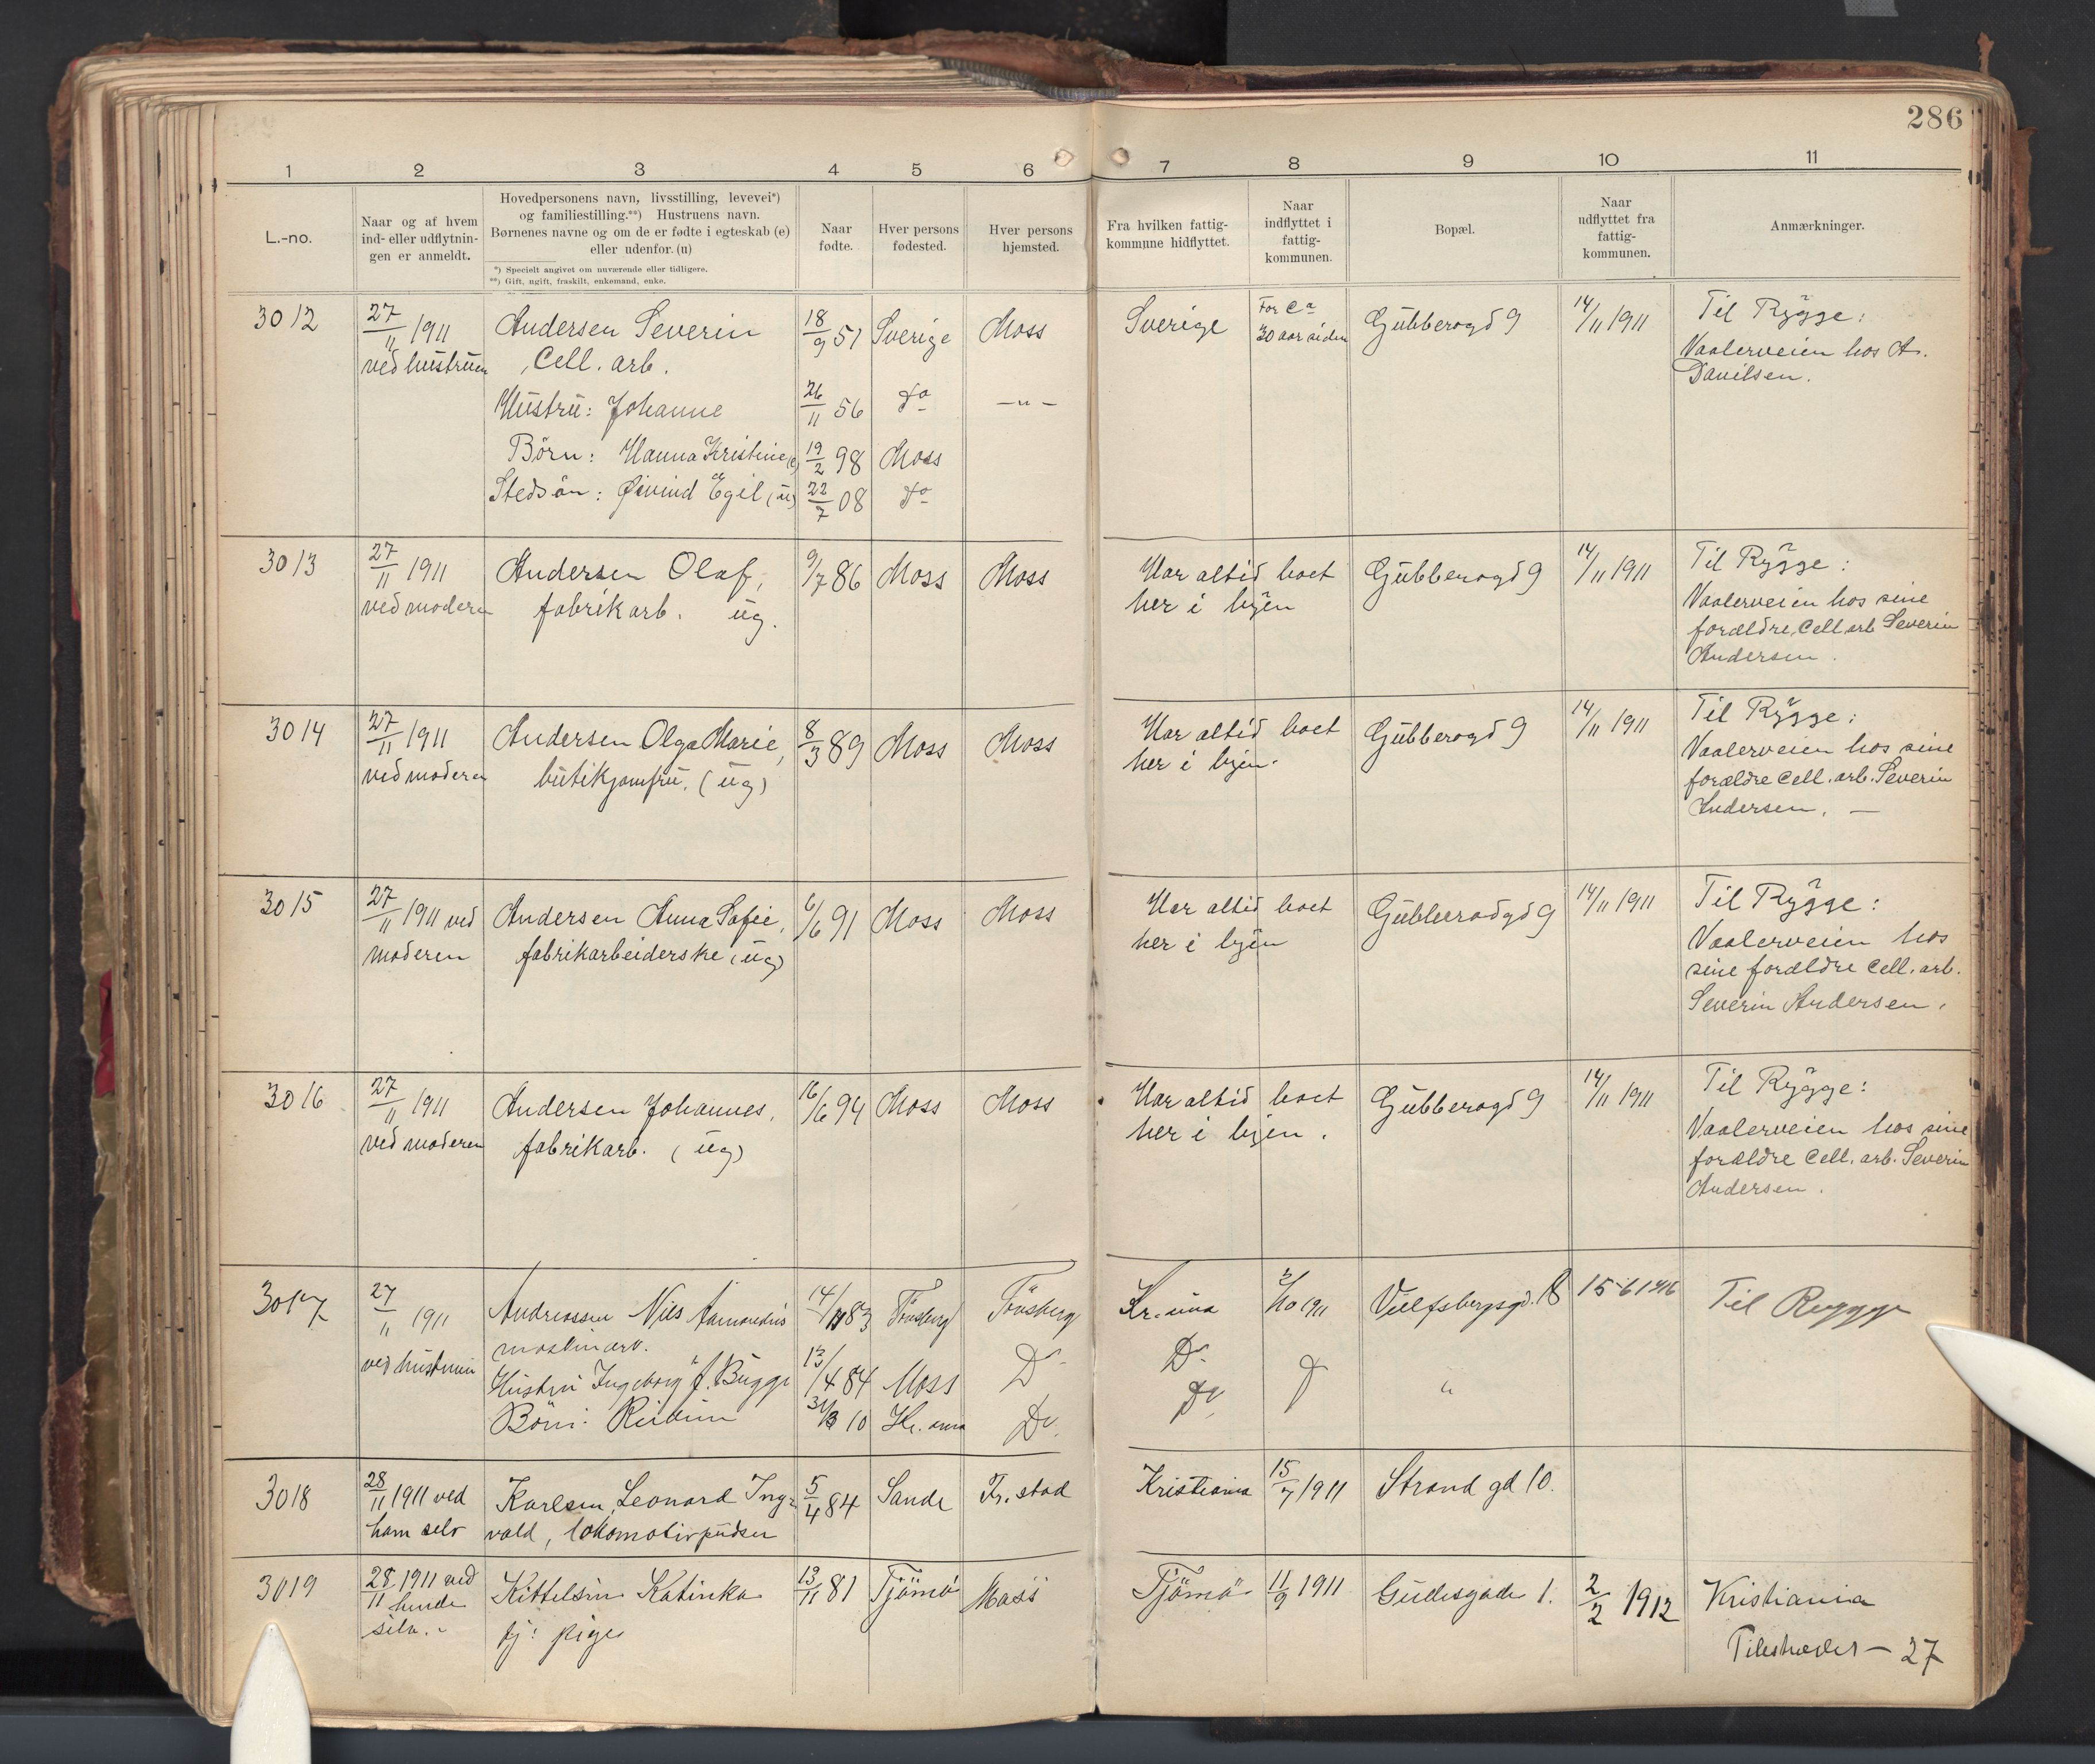 286
1 2 3 4 5 6 7 8 9 10 11
L.-no.
Naar og af hvem
ind- eller udflytnin-
gen er anmeldt.
Hovedpersonens navn, livsstilling, levevei*)
og familiestilling.**) Hustruens navn.
Børnenes navne og om de er fødte i egteskab (e)
eller udenfor. (u)
*) Specielt angivet om nuværende eller tidligere.
**) Gift, ugift, fraskilt, enkemand, enke.
Naar
fødte.
Hver persons
fødested.
Hver persons
hjemsted.
Fra hvilken fattig-
kommune hidflyttet.
Naar
indflyttet i
fattig-
kommunen.
Bopæl.
Naar
udflyttet fra
fattig-
kommunen.
Anmærkninger.
3012
27/11 1911
ved hustruen
Andersen Severin
, Cell. arb.
18/9 51 Sverige Moss
Hustru: Johanne 26/11 56 do —"—
Børn: Hanna Kristine (e) 19/2 98 Moss
Stedsøn: Øivind Egil (u) 22/7 08 do
Sverige
For ca
30 aar siden
Gubberogd 9
14/11 1911
Til Rygge:
Vaalerveien hos A.
Danilsen.
3013
27/11 1911
ved moderen
Andersen Olaf,
fabrikarb. ug.
9/7 86 Moss Moss
Har altid boet
her i byen
Gubberogd 9
14/11 1911
Til Rygge:
Vaalerveien hos sine
forældre, Cell. arb Severin
Andersen.
3014
27/11 1911
ved moderen
Andersen Olga Marie,
butikjomfru. (ug)
8/3 89 Moss Moss
Har altid boet
her i byen.
Gubberogd 9
14/11 1911
Til Rygge:
Vaalerveien hos sine
forældre Cell. arb. Severin
Andersen. —
3015
27/11 1911 ved
moderen
Andersen Anna Sofie,
fabrikarbeiderske (ug)
6/6 91 Moss Moss
Har altid boet
her i byen
Gubberodgd 9
14/11 1911
Til Rygge:
Vaalerveien hos
sine forældre Cell. arb.
Severin Andersen.
3016
27/11 1911
ved moderen
Andersen Johannes,
fabrikarb. (ug)
16/6 94 Moss Moss
Har altid boet
her i byen.
Gubberogd 9
14/11 1911
Til Rygge:
Vaalerveien hos sine
forældre Cell. arb. Severin
Andersen.
3017
27/11 1911
ved hustruen
Andreassen Nils
maskinarb.
83 Tönsberg Tönsberg
Hustru Ingeborg f. Bugge
13/4 84 Moss Do
Börn:
10 Kr.ania Do.
Kr.ania
Do.
Do.
2/10 1911
Vulfsbergsgd.
15-6 1916
Til Rygge
3018
28/11 1911 ved
ham selv
Karlsen, Leonard Ing-
vald, lokomotivpudser
5/4 84 Sande Fr.stad
Kristiania
15/7 1911
Strand gd 10.
3019
28/11 1911 ved
hende
selv.
Kittelsen Katinka
tj: pige
13/11 81 Tjömö Moss
Tjömö
11/9 1911
Gudesgade 1.
2/2 1912
Kristiania
27